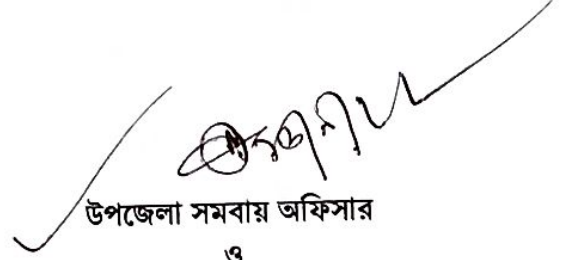 উপজেলা সমবায় অফিসার
ও